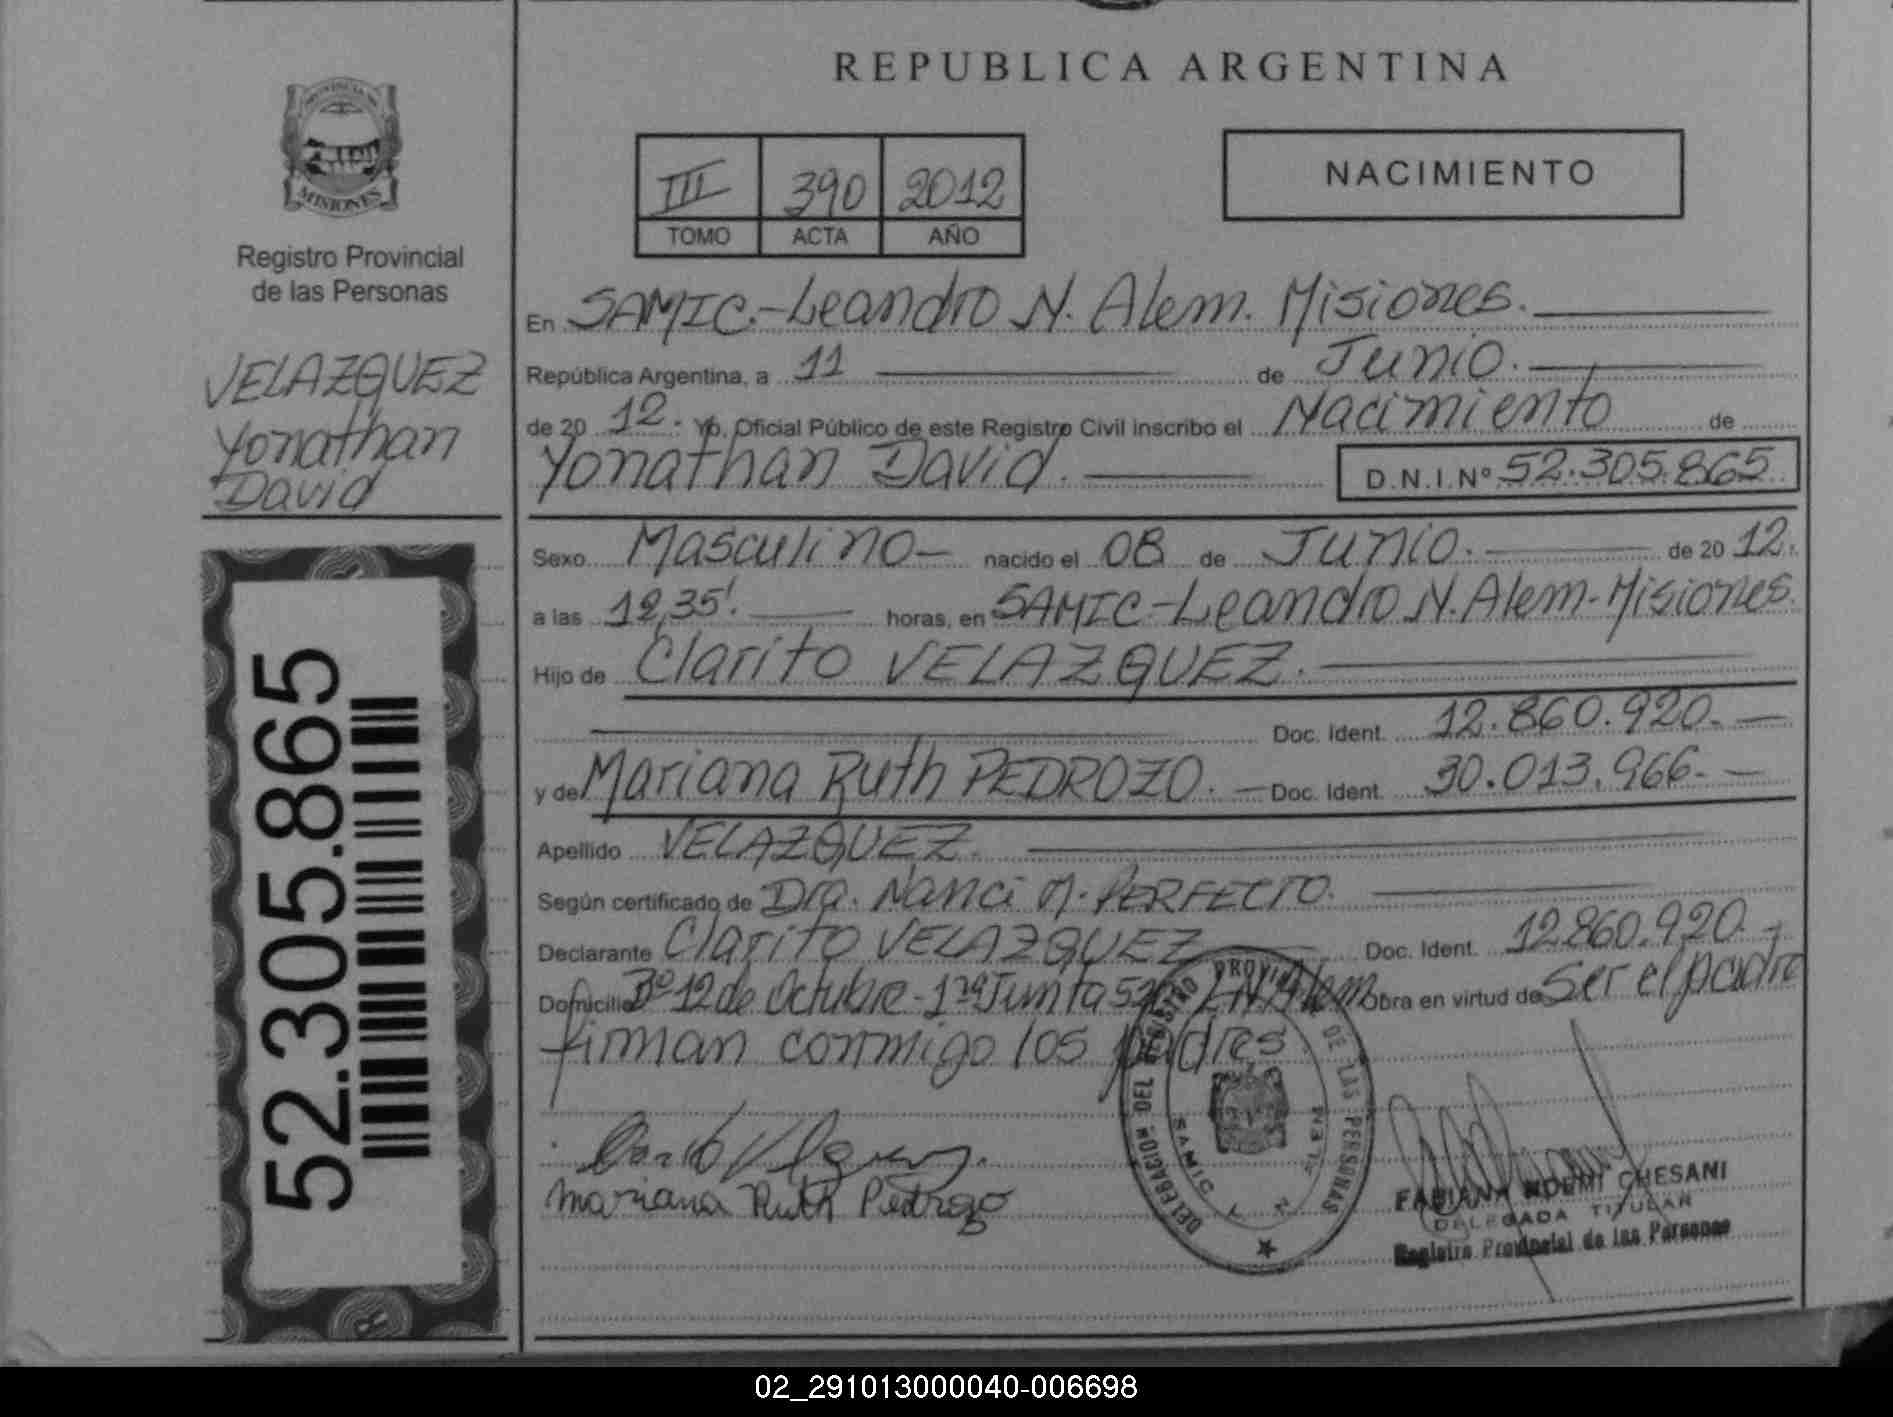 REPUBLICA ARGENTINA
PROVINCIA DE
MISIONES
Registro Provincial
de las Personas
VELAZQUEZ
Yonathan
David
52.305.865
III 390 2012
TOMO ACTA AÑO
NACIMIENTO
En SAMIC.-Leandro N. Alem. Misiones.
República Argentina, a 11 de Junio.
de 20 12. Yo, Oficial Público de este Registro Civil inscribo el Nacimiento de
Yonathan David. D.N.I.Nº 52.305.865
Sexo Masculino nacido el 08 de Junio. de 20 12.
a las 12,35'. horas, en SAMIC-Leandro N. Alem-Misiones.
Hijo de Clarito VELAZQUEZ.
Doc. Ident. 12.860.920.
y de Mariana Ruth PEDROZO. Doc. Ident. 30.013.966.
Apellido VELAZQUEZ.
Según certificado de Dra. Nanci M. PERFECTO.
Declarante Clarito VELAZQUEZ Doc. Ident. 12.860.920.
Domicilio Bº 12 de Octubre-1ra Junta Alem Obra en virtud de Ser el padre
firman conmigo los padres
Mariana Ruth Pedrozo
DELEGACION DEL REGISTRO PROVINCIAL DE LAS PERSONAS
SAMIC
FABIANA NOEMI CHESANI
DELEGADA TITULAR
Registro Provincial de las Personas
02_291013000040-006698